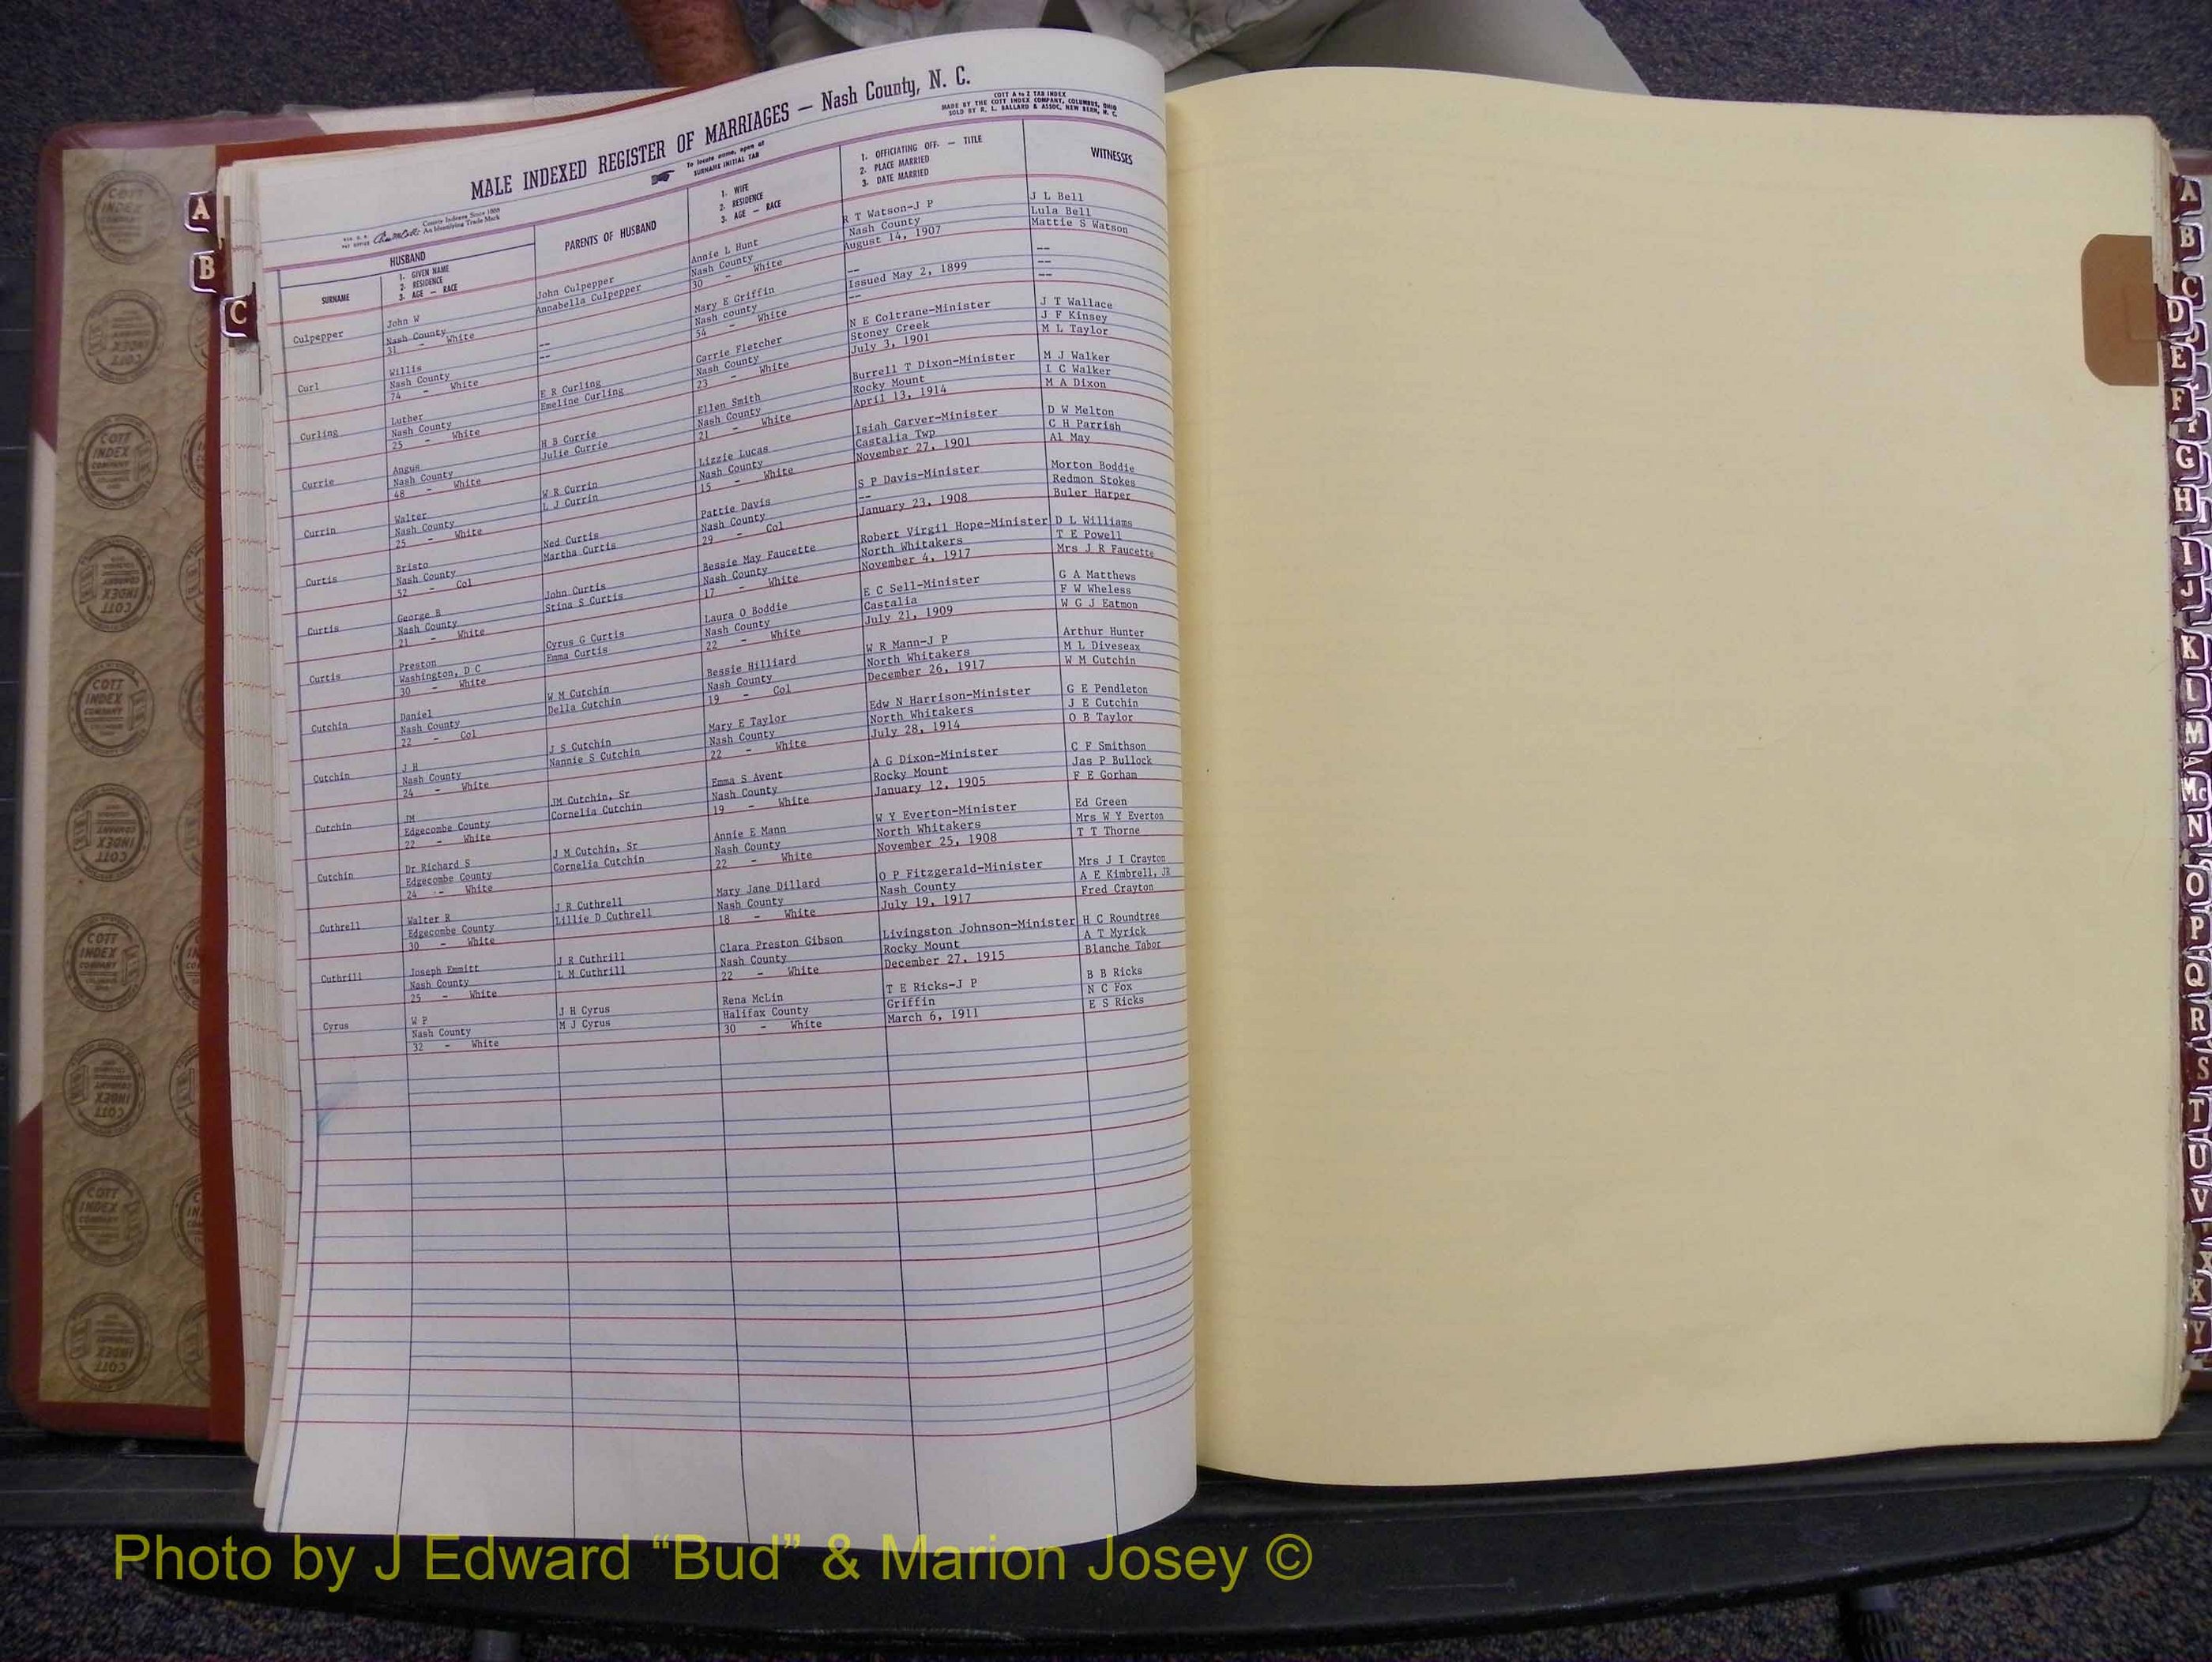 MALE INDEXED REGISTER OF MARRIAGES — Nash County, N. C.
COTT A to Z TAB INDEX
MADE BY THE COTT INDEX COMPANY, COLUMBUS, OHIO
SOLD BY R. L. BALLARD & ASSOC. NEW BERN, N. C.
To locate name, open at
SURNAME INITIAL TAB
County Indexes Since 1888
An Identifying Trade Mark
HUSBAND
SURNAME
1. GIVEN NAME
2. RESIDENCE
3. AGE — RACE
PARENTS OF HUSBAND
1. WIFE
2. RESIDENCE
3. AGE — RACE
1. OFFICIATING OFF. — TITLE
2. PLACE MARRIED
3. DATE MARRIED
WITNESSES
Culpepper John W John Culpepper Annie L Hunt R T Watson-J P J L Bell
Nash County Annabella Culpepper Nash County Nash County Lula Bell
31 - White 30 - White August 14, 1907 Mattie S Watson
Curl Willis -- Mary E Griffin -- --
Nash County -- Nash county Issued May 2, 1899 --
74 - White 54 - White -- --
Curling Luther E R Curling Carrie Fletcher N E Coltrane-Minister J T Wallace
Nash County Emeline Curling Nash County Stoney Creek J F Kinsey
25 - White 23 - White July 3, 1901 M L Taylor
Currie Angus H B Currie Ellen Smith Burrell T Dixon-Minister M J Walker
Nash County Julie Currie Nash County Rocky Mount I C Walker
48 - White 21 - White April 13, 1914 M A Dixon
Currin Walter W R Currin Lizzie Lucas Isiah Carver-Minister D W Melton
Nash County L J Currin Nash County Castalia Twp C H Parrish
25 - White 15 - White November 27, 1901 Al May
Curtis Bristo Ned Curtis Pattie Davis S P Davis-Minister Morton Boddie
Nash County Martha Curtis Nash County -- Redmon Stokes
52 - Col 29 - Col January 23, 1908 Buler Harper
Curtis George B John Curtis Bessie May Faucette Robert Virgil Hope-Minister D L Williams
Nash County Stina S Curtis Nash County North Whitakers T E Powell
21 - White 17 - White November 4, 1917 Mrs J R Faucette
Curtis Preston Cyrus G Curtis Laura O Boddie E C Sell-Minister G A Matthews
Washington, D C Emma Curtis Nash County Castalia F W Wheless
30 - White 22 - White July 21, 1909 W G J Eatmon
Cutchin Daniel W M Cutchin Bessie Hilliard W R Mann-J P Arthur Hunter
Nash County Della Cutchin Nash County North Whitakers M L Diveseax
22 - Col 19 - Col December 26, 1917 W M Cutchin
Cutchin J H J S Cutchin Mary E Taylor Edw N Harrison-Minister G E Pendleton
Nash County Nannie S Cutchin Nash County North Whitakers J E Cutchin
24 - White 22 - White July 28, 1914 O B Taylor
Cutchin JM JM Cutchin, Sr Emma S Avent A G Dixon-Minister C F Smithson
Edgecombe County Cornelia Cutchin Nash County Rocky Mount Jas P Bullock
22 - White 19 - White January 12, 1905 F E Gorham
Cutchin Dr Richard S J M Cutchin, Sr Annie E Mann W Y Everton-Minister Ed Green
Edgecombe County Cornelia Cutchin Nash County North Whitakers Mrs W Y Everton
24 - White 22 - White November 25, 1908 T T Thorne
Cuthrell Walter R J R Cuthrell Mary Jane Dillard O P Fitzgerald-Minister Mrs J I Crayton
Edgecombe County Lillie D Cuthrell Nash County Nash County A E Kimbrell, JR
30 - White 18 - White July 19, 1917 Fred Crayton
Cuthrill Joseph Emmitt J R Cuthrill Clara Preston Gibson Livingston Johnson-Minister H C Roundtree
Nash County L M Cuthrill Nash County Rocky Mount A T Myrick
25 - White 22 - White December 27, 1915 Blanche Tabor
Cyrus W P J H Cyrus Rena McLin T E Ricks-J P B B Ricks
Nash County M J Cyrus Halifax County Griffin N C Fox
32 - White 30 - White March 6, 1911 E S Ricks
A
B
C
A
B
C
D
E
F
G
H
I
J
K
L
M
Mc
N
O
P
Q
R
S
T
U
V
X
Y
COTT INDEX COMPANY
Photo by J Edward “Bud” & Marion Josey ©